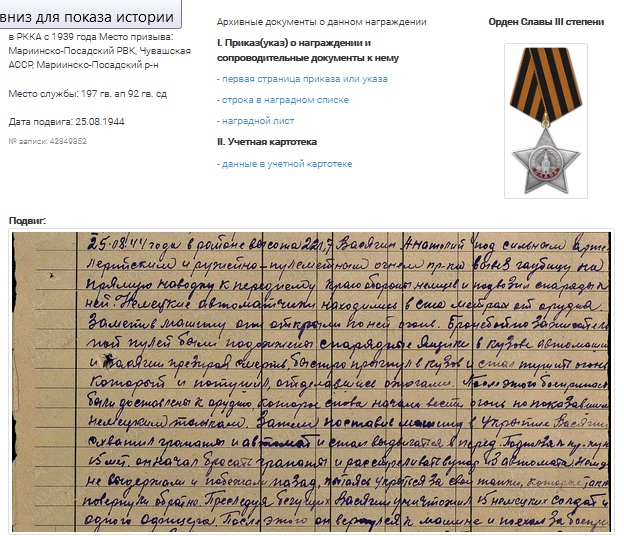 вниз для показа истории
в РККА с 1939 года Место призыва:
Мариинско-Посадский РВК, Чувашская
АССР, Мариинско-Посадский р-н
Место службы: 197 гв. ап 92 гв. сд
Дата подвига: 25.08.1944
№ записи: 42849352
Архивные документы о данном награждении
I. Приказ(указ) о награждении и
сопроводительные документы к нему
- первая страница приказа или указа
- строка в наградном списке
- наградной лист
II. Учетная картотека
- данные в учетной картотеке
Орден Славы III степени
Подвиг:
25.08.44 года в районе высота 221,7 Васягин Анатолий под сильным арти-
лерийским и ружейно-пулеметным огнем пр-ка вывел гаубицу на
прямую наводку к переднему краю обороны немцев и подвозил снаряды к
ней. Немецкие автоматчики находились в ста метрах от орудия.
Заметив машину они открыли по ней огонь. Бронебойно зажигатель
ной пулей были подожжены снарядные ящики в кузове автомашины
и Васягин презирая смерть, быстро прыгнул в кузов и стал тушить огонь
который и потушил, отделавшись ожогами. После этого боеприпасы
были доставлены к орудию, которые снова начали вести огонь по показавшим
немецким танкам. Затем поставив машину в укрытие Васягин
схватил гранаты и автомат и стал выдвигаться в перед. Подполз к
15 мт. он начал бросать гранаты и расстреливать из автомата. Немцы
не выдержали и побежали назад, пытаясь укрыться за свои танки, которые так
повернули обратно. Преследуя бегущих Васягин уничтожил 15 немецких солдат и
одного офицера. После этого он вернулся к машине и поехал за боепри